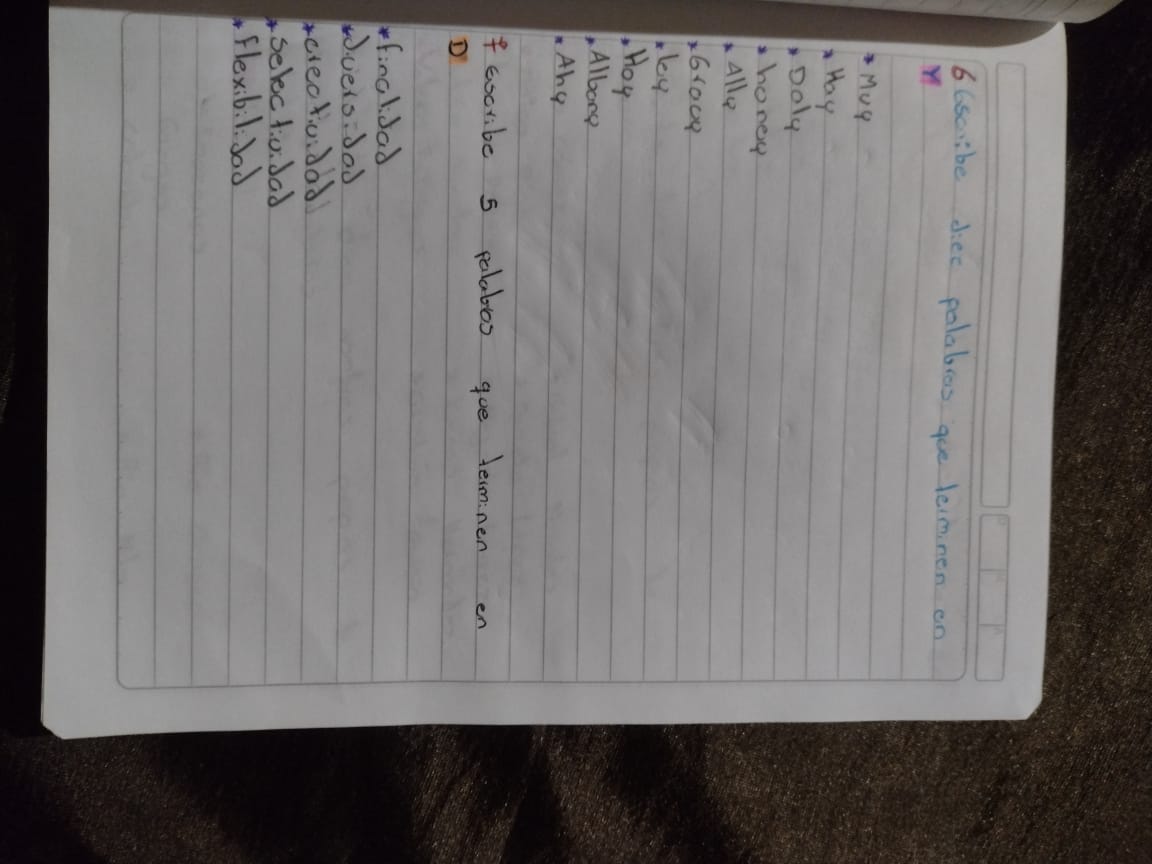 6 Escribe diez palabras que terminen en
Y
* Muy
* Hay
* Daly
* honey
* Ally
* Gracy
* ley
* Hoy
* Albany
* Ahy
7 escribe 5 palabas que terminen en
D
* finalidad
* diversidad
* creatividad
* Selectividad
* Flexibilidad